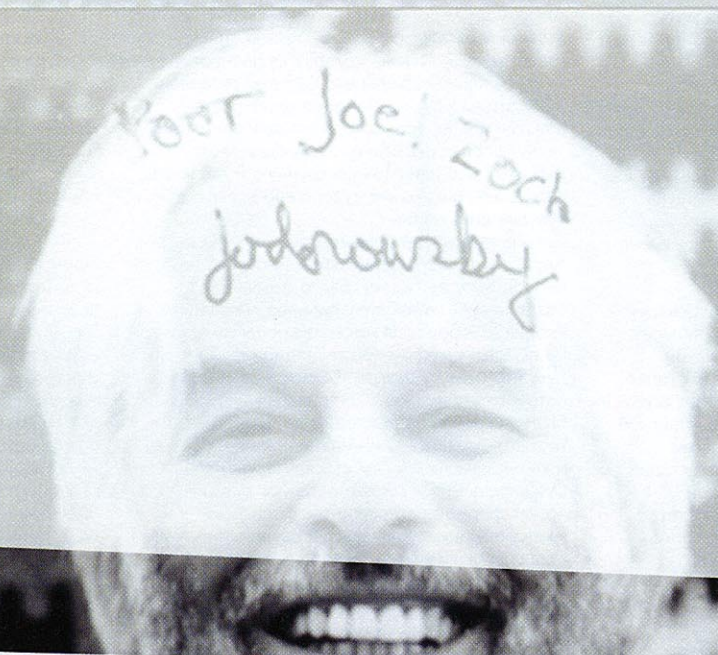 Poor Joe! Zoch
Jodorowsky